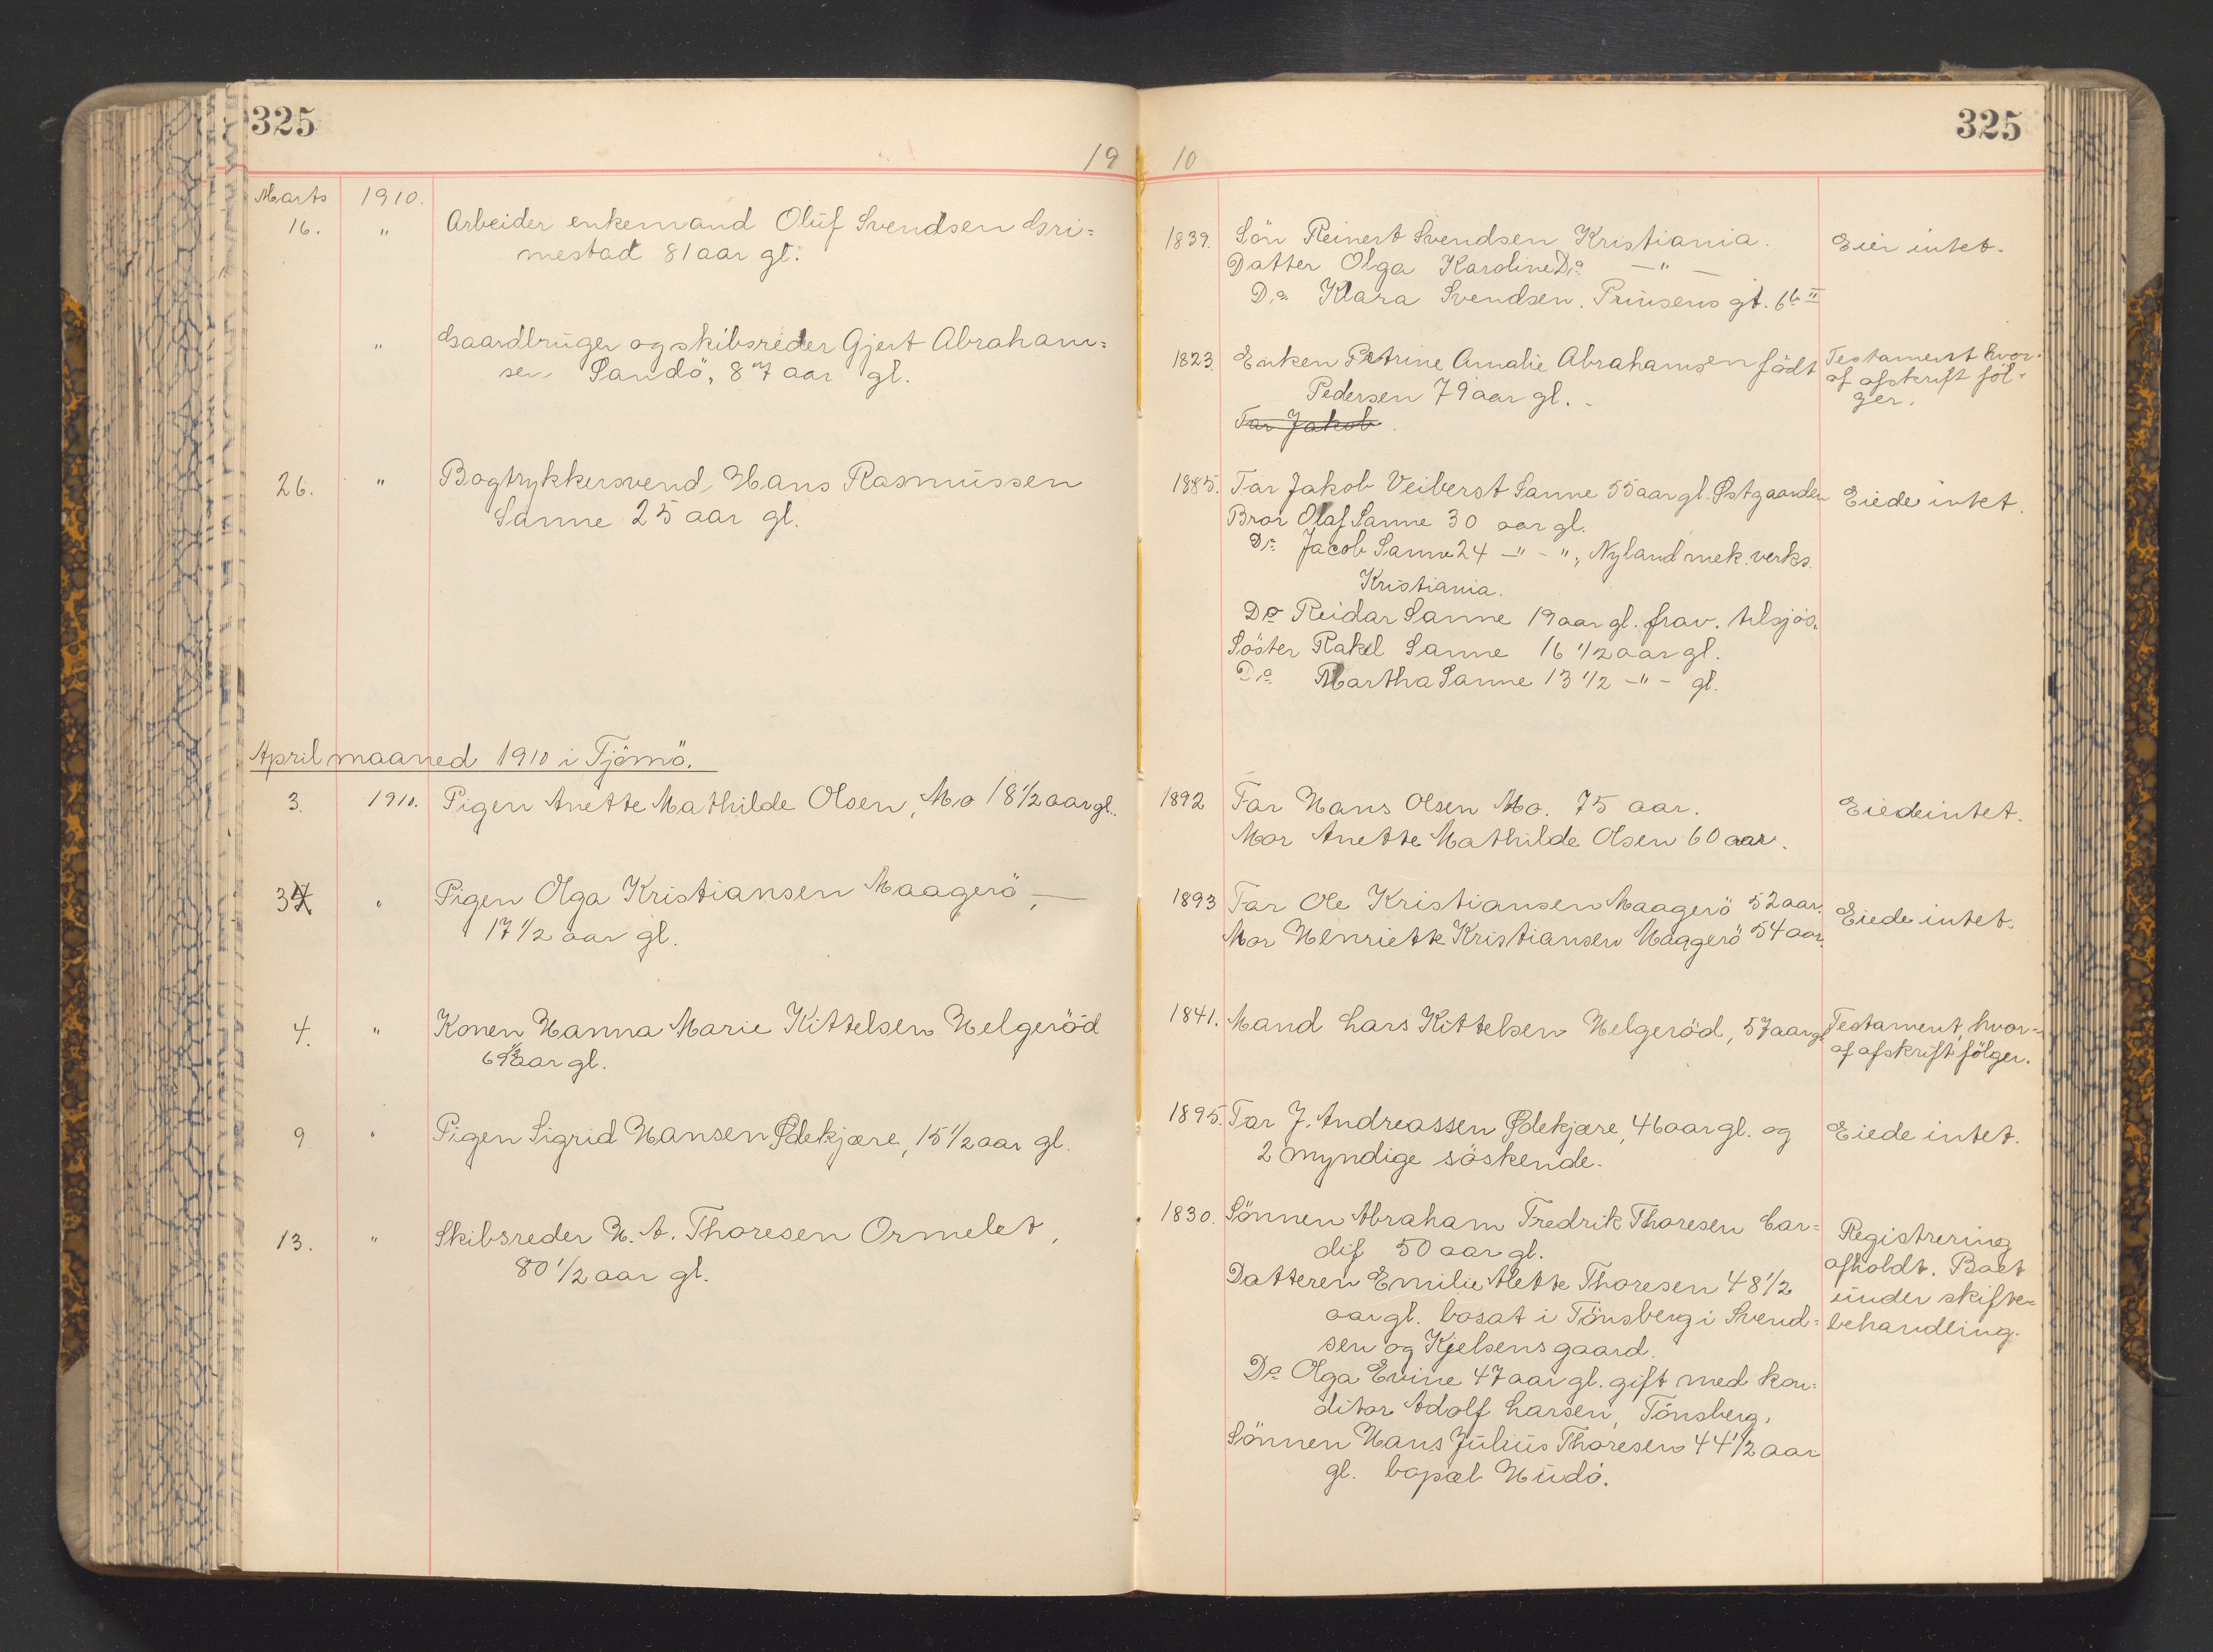 325
19
Marts 1910.
16. " Arbeider enkemand Oluf Svendsen Gri=
mestad 81 aar gl.
" Gaardbruger og skibsreder Gjert Abraham=
sen Sandö, 87 aar gl.
26. " Bogtrykkersvend Hans Rasmussen
Sanne 25 aar gl.
April maaned 1910 i Tjömö.
3. 1910. Pigen Anette Mathilde Olsen, Mo 18 1/2 aar gl.
3 " Pigen Olga Kristiansen Maagerö, —
17 1/2 aar gl.
4. " Konen Hanna Marie Kittelsen Helgeröd
69 1/2 aar gl.
9. " Pigen Sigrid Hansen Ødekjære, 15 1/2 aar gl.
13. " Skibsreder H. A. Thoresen Ormelet,
80 1/2 aar gl.
325
10
1839. Sön Reinert Svendsen Kristiania. Eier intet.
Datter Olga Karoline Do — " —
Do Klara Svendsen. Prinsens gt. 6b II
1823. Enken Petrine Amalie Abrahamsen födt Testament hvor-
Pedersen 79 aar gl. af afskrift föl-
Far Jakob ger.
1885. Far Jakob Veiberst Sanne 55 aar gl. Østgaarden Eiede intet.
Bror Olaf Sanne 30 aar gl.
Do Jacob Sanne 24 — " - ", Nyland mek. verks.
Kristiania.
Do Reidar Sanne 19 aar gl. frav. tilsjös.
Söster Rakel Sanne 16 1/2 aar gl.
Do Martha Sanne 13 1/2 - " - gl.
1892 Far Hans Olsen Mo. 75 aar. Eiede intet.
Mor Anette Mathilde Olsen 60 aar.
1893 Far Ole Kristiansen Maagerö 52 aar. Eiede intet.
Mor Henriette Kristiansen Maagerö 54 aar.
1841. Mand Lars Kittelsen Helgeröd, 57 aar gl. Testament, hvor-
af afskrift fölger.
1895. Far J. Andreassen Ødekjære, 46 aar gl. og Eiede intet.
2 myndige söskende.
1830. Sönnen Abraham Fredrik Thoresen Car= Registrering
dif 50 aar gl. afholdt. Boet
Datteren Emilie Alette Thoresen 48 1/2 under skifte-
aar gl. bosat i Tönsberg i Svend= behandling.
sen og Kjelsens gaard.
Do Olga Evine 47 aar gl. gift med kon=
ditor Adolf Larsen, Tönsberg,
Sönnen Hans Julius Thoresen 44 1/2 aar
gl. bopæl Hudö.